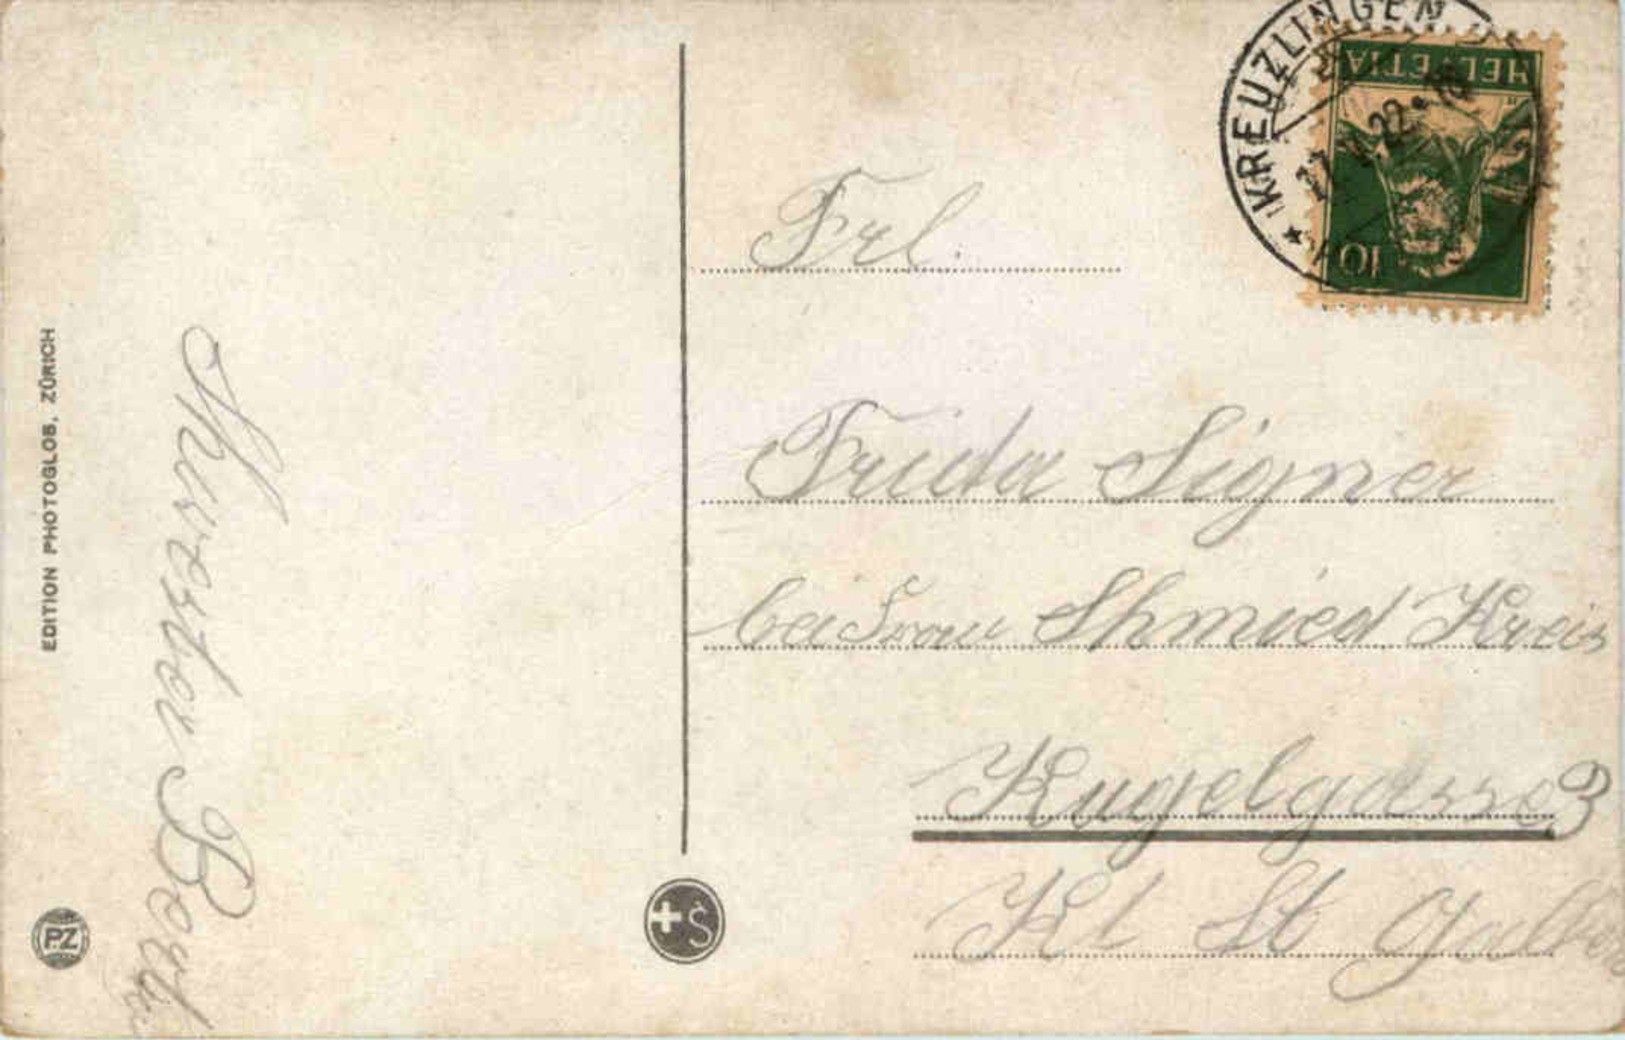 EDITION PHOTOGLOB, ZÜRICH
PZ
Shwester Berta
+S
KREUZLINGEN
22
HELVETIA
10
Frl.
Frieda Signer
bei Frau Shmied Kreis
Kugelgasse 3
Kt St Gallen